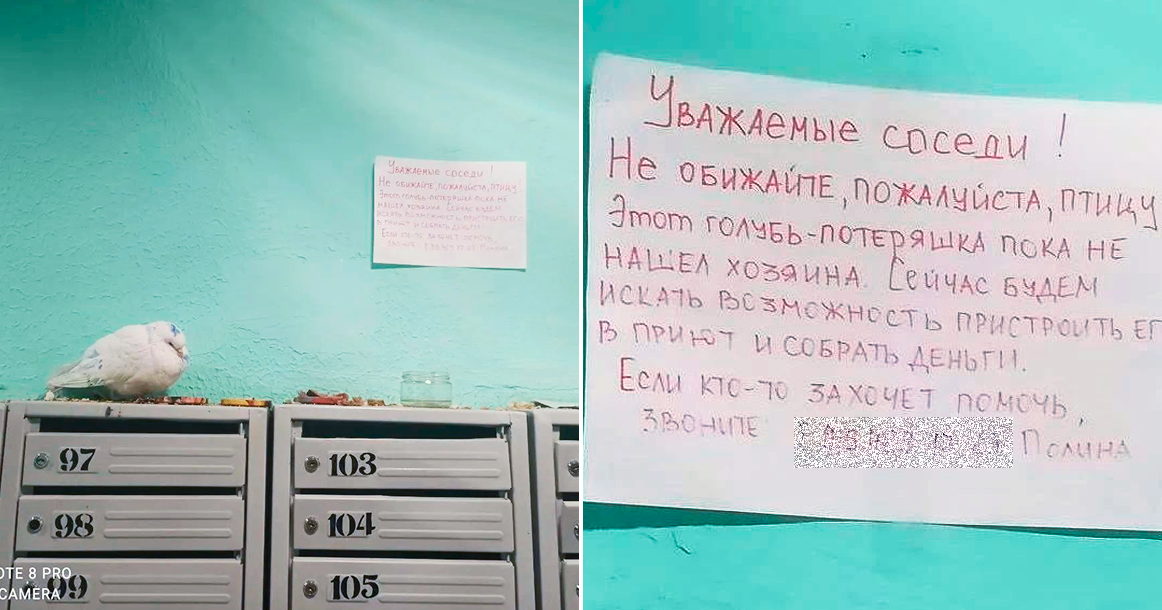 Уважаемые соседи!
Не обижайте, пожалуйста, птицу
Этот голубь-потеряшка пока не
нашел хозяина. Сейчас будем
искать возможность пристроить его
в приют и собрать деньги.
Если кто-то захочет помочь,
звоните Полина
97
98
99
103
104
105
OTE 8 PRO
CAMERA
Уважаемые соседи!
Не обижайте, пожалуйста, птицу
Этот голубь-потеряшка пока не
нашел хозяина. Сейчас будем
искать возможность пристроить ег
в приют и собрать деньги.
Если кто-то захочет помочь,
звоните Полина